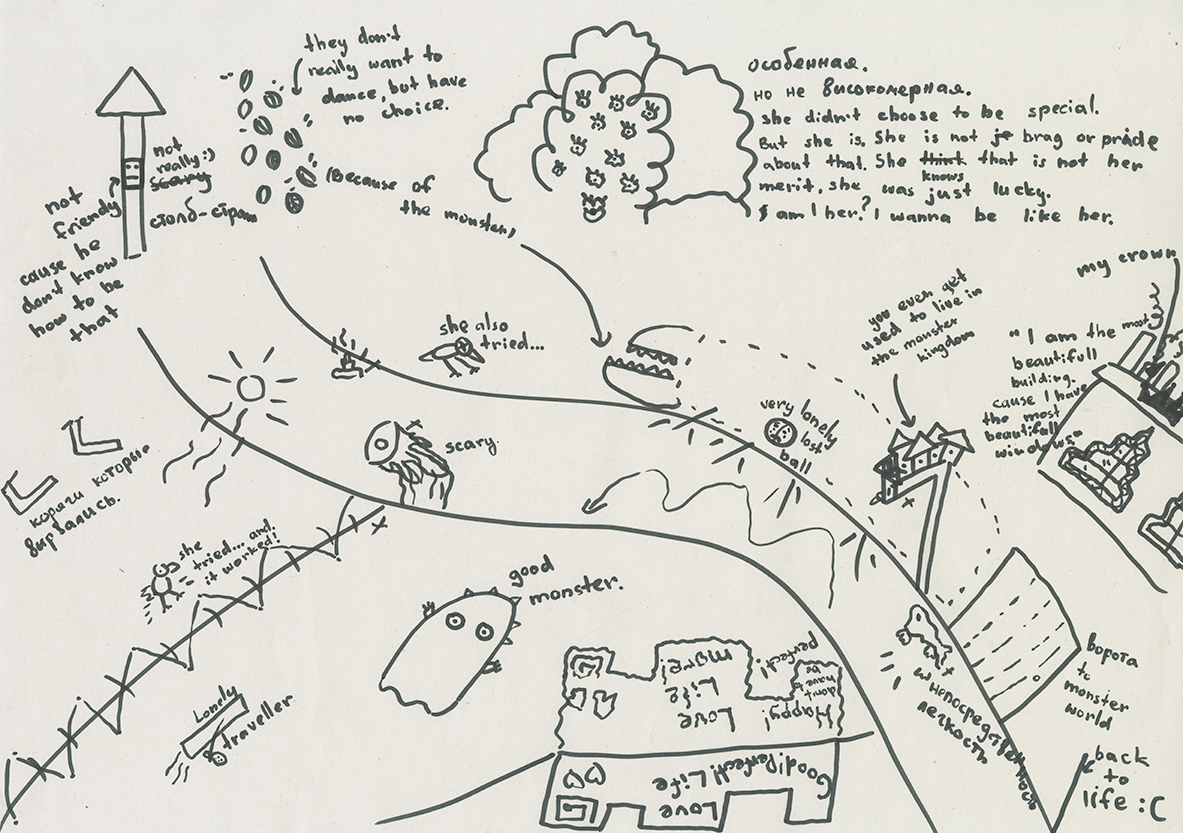 they don't
really want to
dance, but have
no choice.
(Because of
the monster)
not
really :)
scary
столб-страж
not
friendly
cause he
don't know
how to be
that
особенная.
но не високомерная.
she didn't choose to be special.
But she is. She is not brag or pride
about that. She think knows that is not her
merit, she was just lucky.
am I her? I wanna be like her.
my crown
you even get
used to live in
the monster
kingdom
"I am the most
beautifull
building.
cause I have
the most
beautifull
windows"
she also
tried...
scary.
very lonely
lost
ball
коряги которые
вырвались.
she
tried... and
it worked!
good
monster.
Lonely
traveller.
More!
Life
Love
perfect!
don't
have to
be
Happy!
Good! Perfect! Life
Love
легкость
ворота
to
monster
world
back
to
life :C